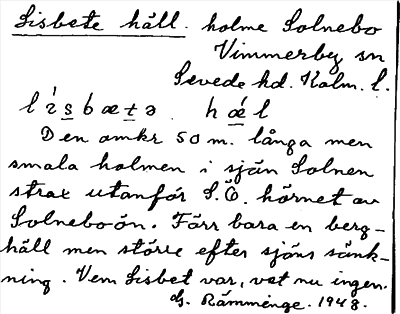 Lisbete häll. holme Solnebo
Vimmerby sn
Sevede hd. Kalm. l.
l i̍ s̲ b æ t̲ ə . h ǽ̲ l
Den omkr 50 m. långa men
smala holmen i sjön Solnen
strax utanför S.Ö. hörnet av
Solneboön. Förr bara en berg-
häll men större efter sjöns sänk-
ning. Vem Lisbet var, vet nu ingen.
G. Rämmenge. 1948.